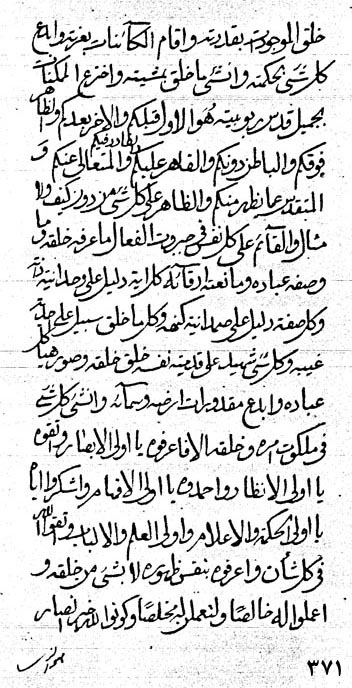 خلق الموجودات بقدرته واقام الكآئنات بعزته وابدع
كل شئ بحكمته وانشئ ما خلق بمشيته واخترع الممكنات
بجميل قدس ربوبيته هو الاول قبلكم والاخر بعدكم والظاهر
فوقكم والباطن دونكم والقاهر عليكم والمتعالى عنكم و
المتقدس عما يظهر منكم والظاهر على كل شئ من دون كيف ولا
مثال والقآئم على كل نفس فى جبروت الفعال ما عرفه خلقه وما
وصفه عباده وما نعته ارقآئه كل اية دليل على وحدانية ذاته
وكل صفة دليل على صمدانية كنهه وكل ما خلق سبيل على
غيبه وكل شئ شهيد على قدمية نفسه خلق خلقه وصور هياكل
عباده وابدع مقدورات ارضه وسمآئه وانشئ كل شئ
فى ملكوت امره وخلقه الا فاعرفوه يا اولى الابصار واتقوه
يا اولى الانظار واحمدوه يا اولى واشكروا اياه
يا اولى الحكمة والاعلام واولى العلم والالباب واتقوا الله
فى كل شأن واعرفوه بنفس ظهوره لا بشئ من خلقه و
اعملوا له خالصا ولتعملن له مخلصا وكونوا لله خير انصار
٣٧١